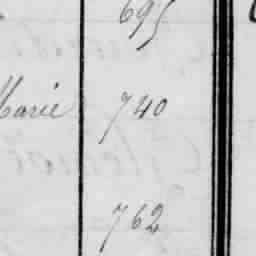 695
Marie 740
762